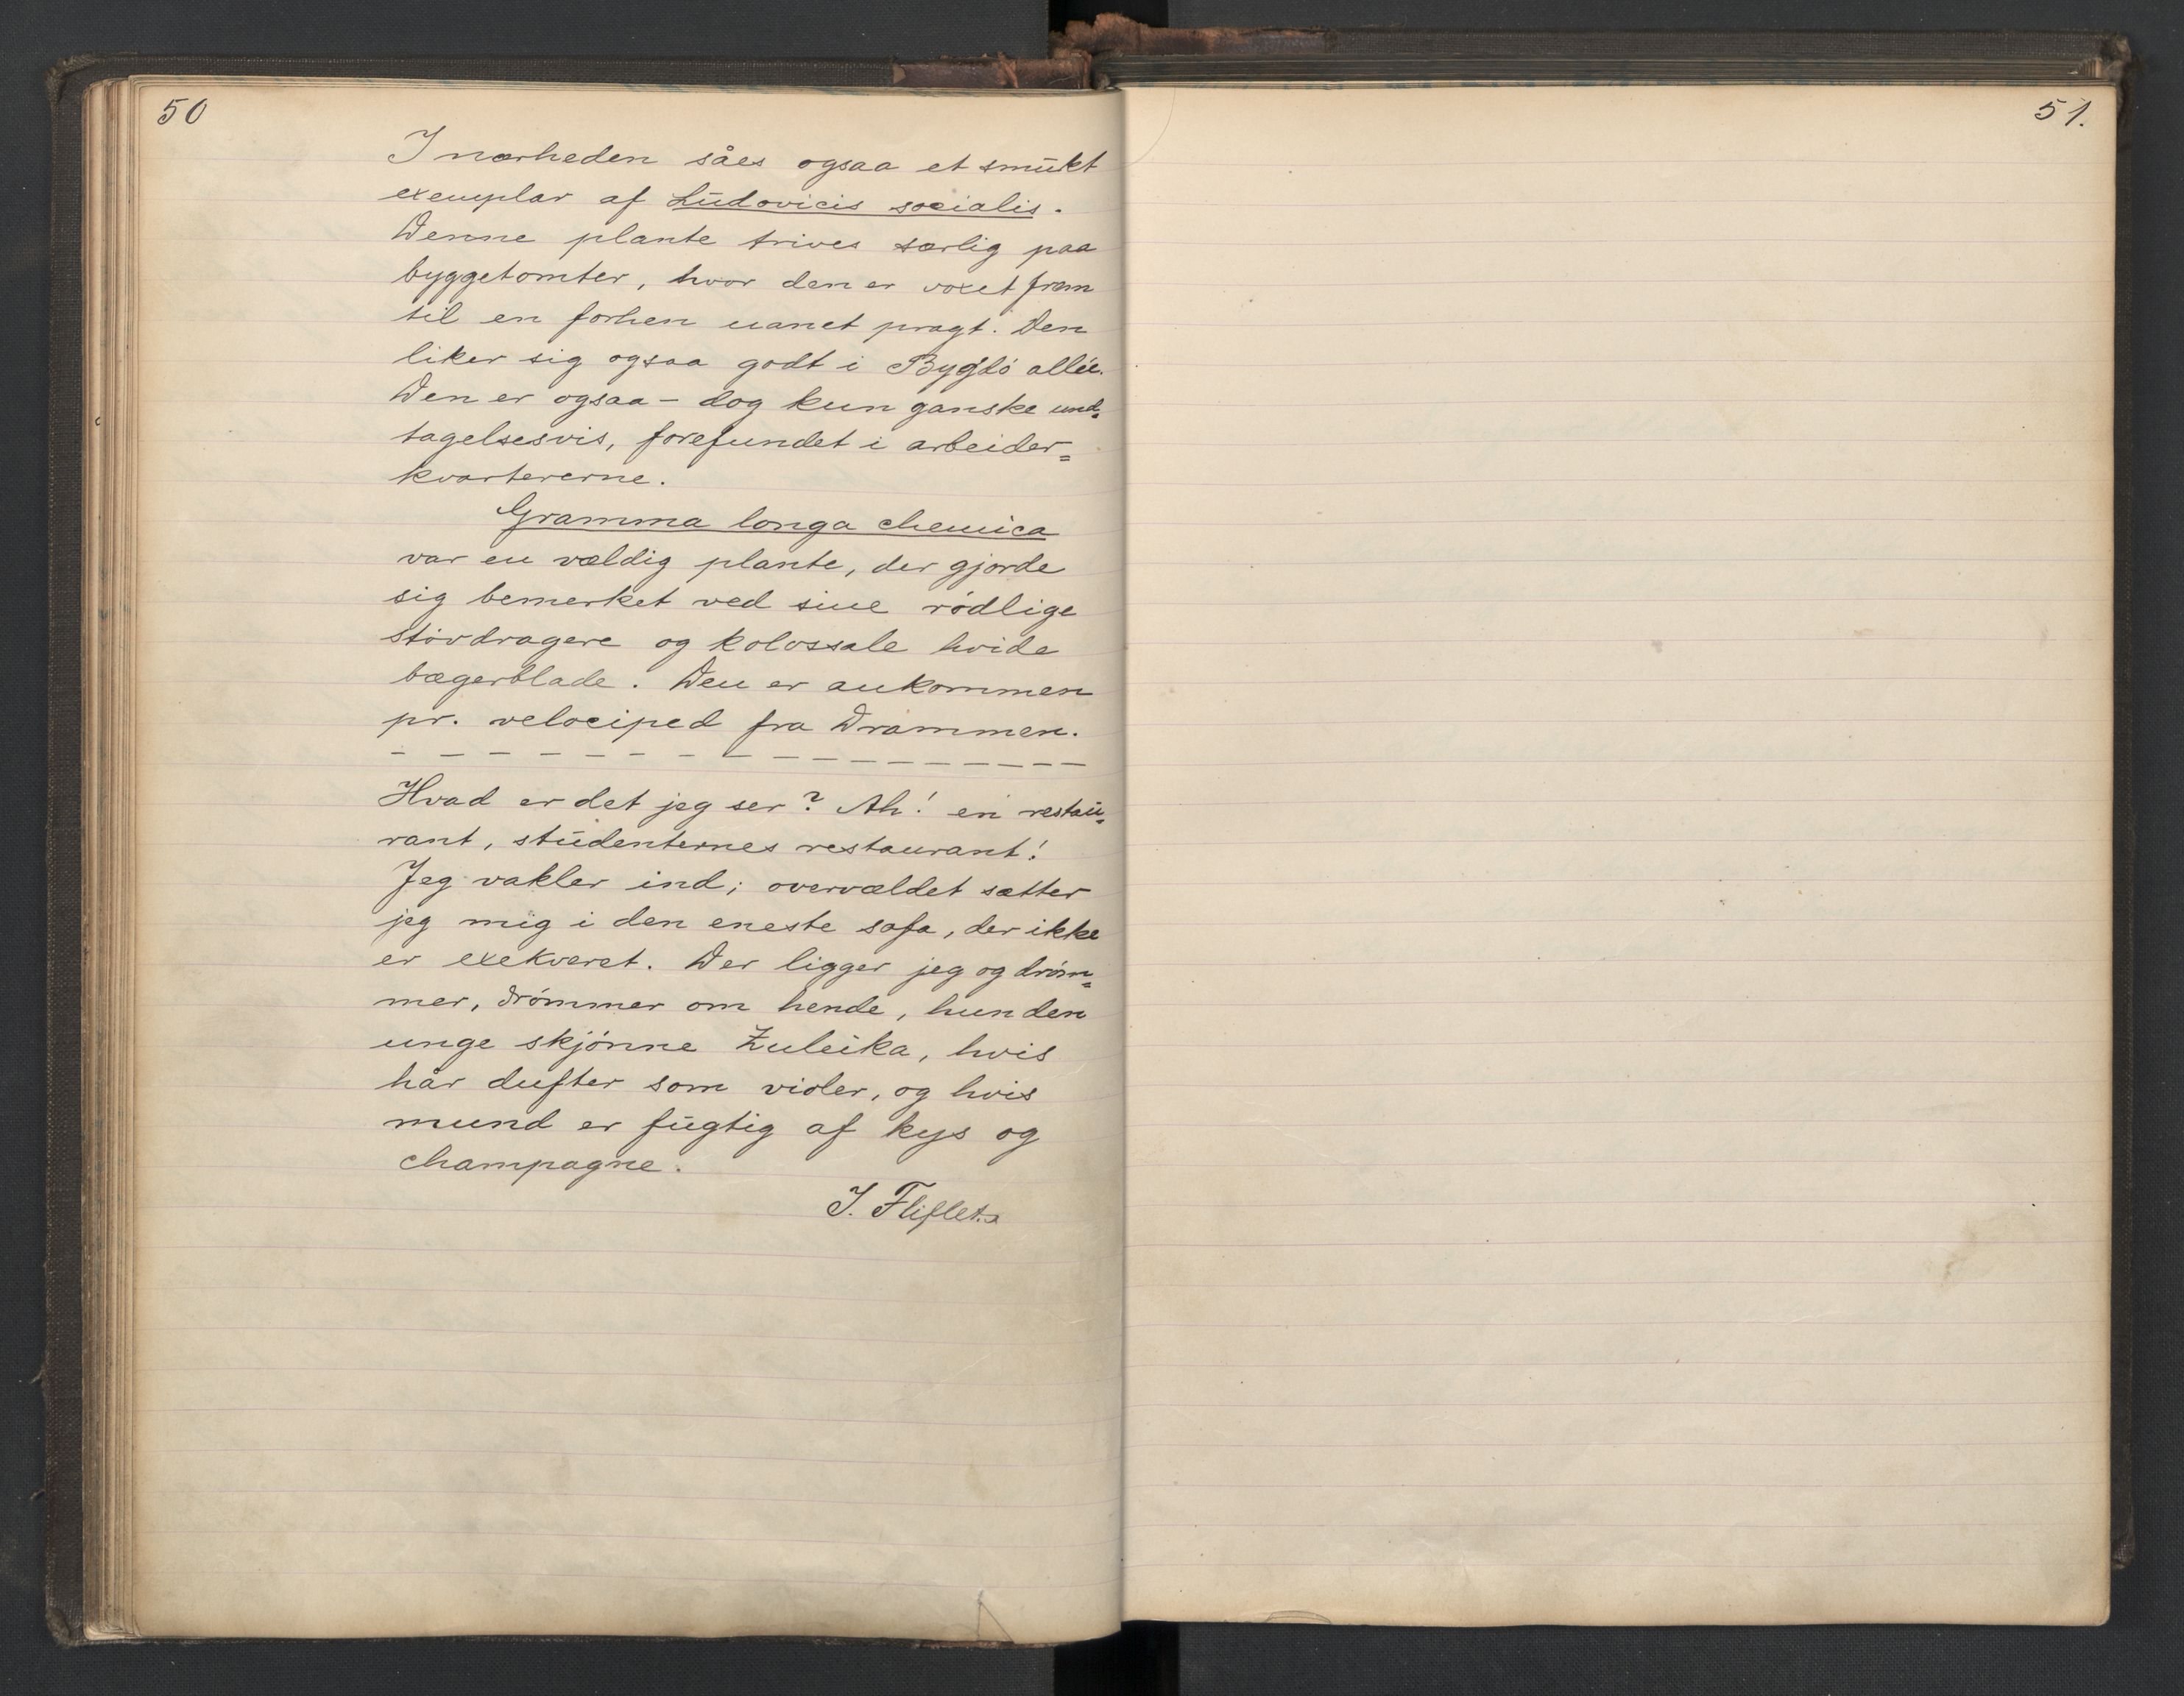 50
I nærheden såes ogsaa et smukt
exemplar af Ludovicis socialis.
Denne plante trives særlig paa
byggetomter, hvor den er voxet frem
til en forhen uanet pragt. Den
liker sig ogsaa godt i Bygdö allée.
Den er ogsaa – dog kun ganske und=
tagelsesvis, forefundet i arbeider=
kvartererne.
Gramma longa chemica
var en vældig plante, der gjorde
sig bemerket ved sine rödlige
stövdragere og kolossale hvide
bægerblade. Den er ankommen
pr. velociped fra Drammen.
— — — — — — — — — — — — — — —
Hvad er det jeg ser? Ah! en restau=
rant, studenternes restaurant!
Jeg vakler ind; overvældet sætter
jeg mig i den eneste sofa, der ikke
er exekveret. Der ligger jeg og dröm=
mer, drömmer om hende, hun den
unge skjönne Zuleika, hvis
hår dufter som violer, og hvis
mund er fugtig af kys og
champagne.
J. Fliflet.
51.